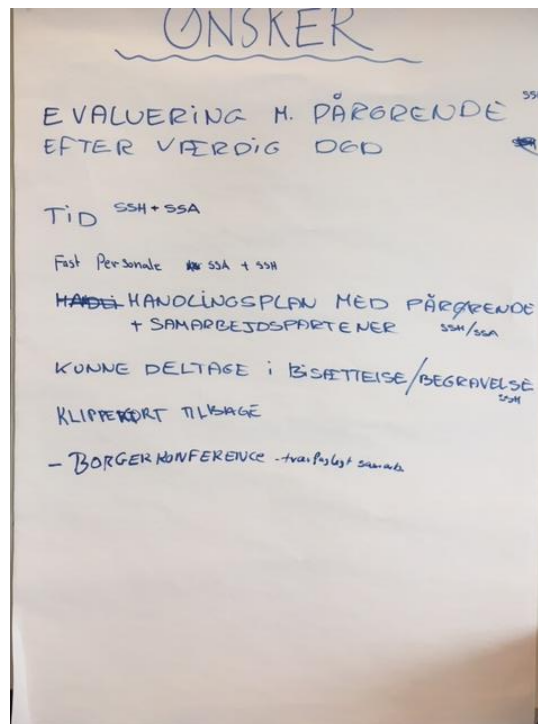 ØNSKER
EVALUERING M. PÅRØRENDE SSH
EFTER VÆRDIG DØD
TID SSH + SSA
Fast Personale SSA + SSH
HANDLINGSPLAN MED PÅRØRENDE
+ SAMARBEJDSPARTENER SSH/SSA
KUNNE DELTAGE i BISÆTTELSE/BEGRAVELSE
SSH
KLIPPEKORT TILBAGE
- BORGERKONFERENCE - tværfagligt samarb